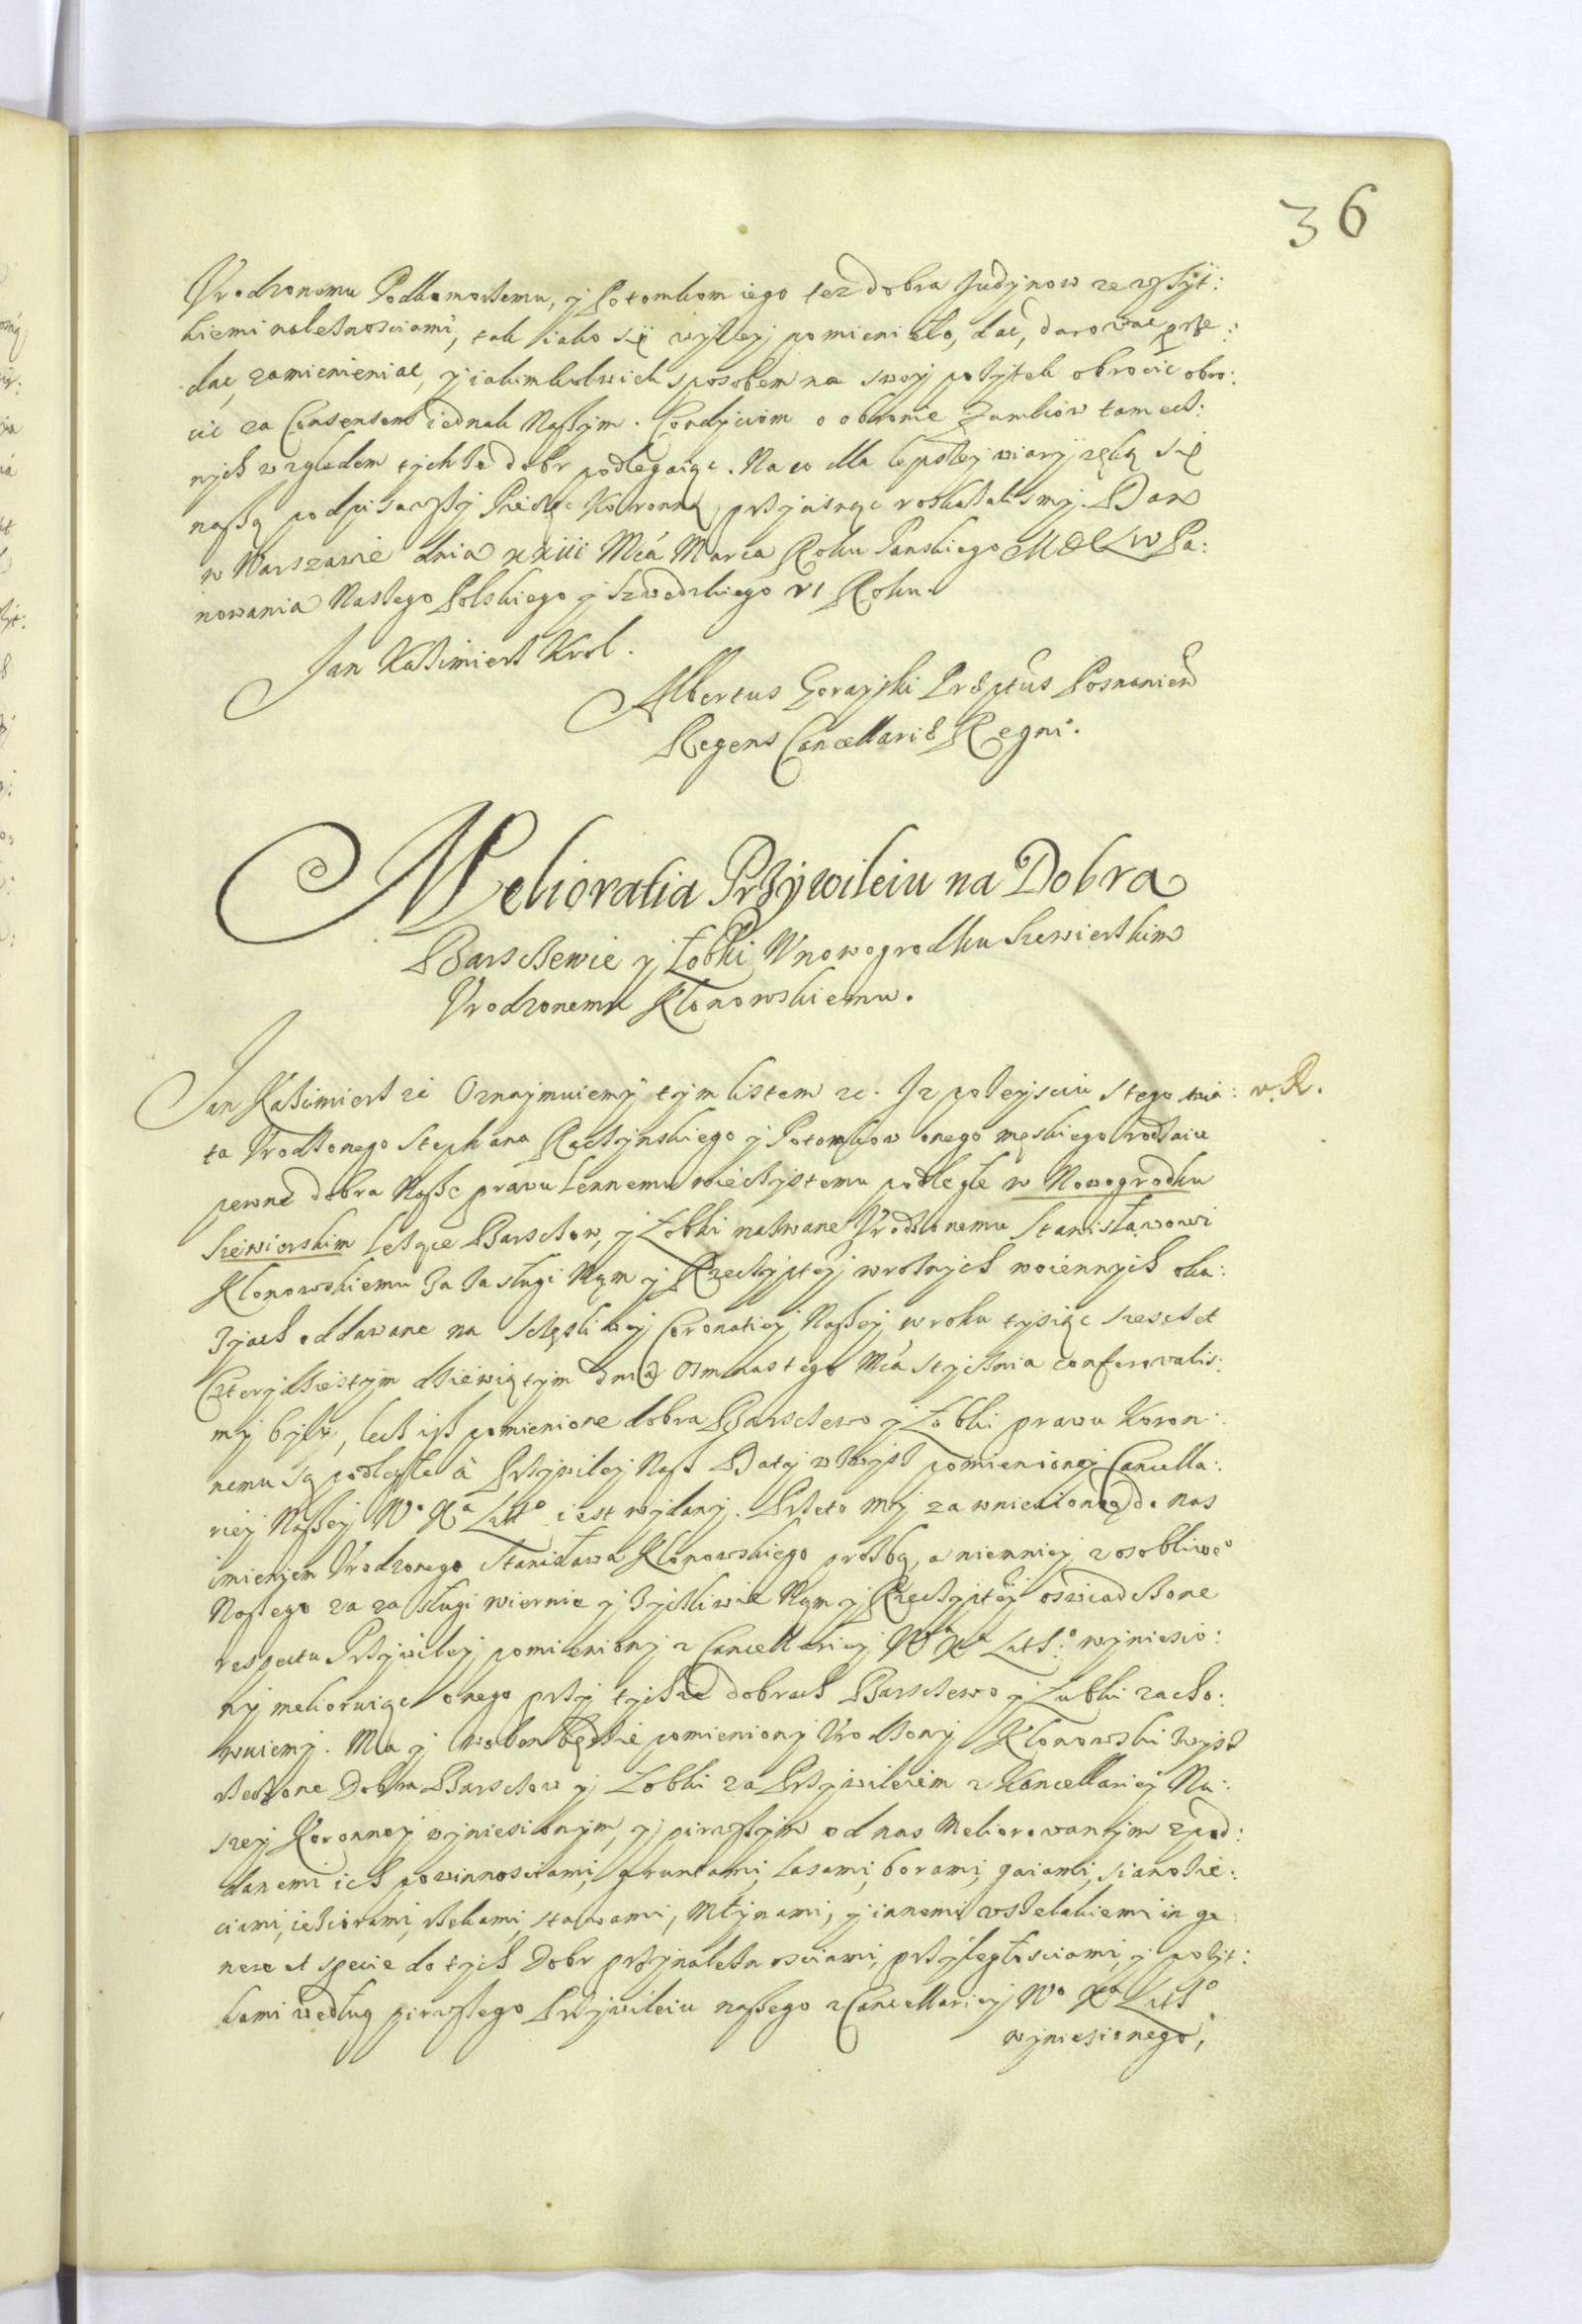 36
Vrodzonemu Podkomorzemu, y Potomkom iego tez dobra Judynow ze wszyt:
kiemi naleznosciami, tak iako się wyszey pomieniło, dac, darowac prze:
dac, zamienieniac, y iakimkolwiek sposobem na swoy pozytek obrocic obro:
cic za Consensem iednak Naszym. Condyciom o obronie Zamków tamecz:
nych względem tychze dobr podlegaiąc. Na co dla lepszey wiary ręką się
naszą podpisawszy Pieczęc Koronną przycisnąc roskazalismy. Dan
w Warszawie dnia XXIIII Mca Marca Roku Panskiego MDCL w Pa:
nowania Naszego Polskiego y Szwedzkiego VI Roku.
Jan Kazimierz Krol.
Albertus Gorayski Pręptus Posnanien
Regens Cancellarię Regni.
Melioratia Przywileiu na Dobra
Barsczewie y Łobki W nowogrodku Siewierskim
Vrodzonemu Klonowskiemu.
Jan Kazimierz zc Oznaymuiemy tym listem zc. Iz po zeysciu stego swia: v. R.
ta Vrodzonego Stephana Raczynskiego y Potomkow onego męskiego rodzaiu
pewne dobra Nasze prawu lennemu wieczystemu podległe w Nowogrodku
Siewierskim lezące Barsczow, y Łobki nazwane Vrodzonemu Stanisławowi
Klonowskiemu Za Zasługi Nąm y Rzeczyptey w roznych woiennych oka:
zyach oddawane na sczęsliwey Coronatiey Naszey w roku tysiąc szesczet
Czterydziestym dziewiątym dnia Osmnastego Mca Stycznia conferowalis:
my byli, lecz isz pomienione dobra Barsczewo y Łobki prawu Koron:
nemu są podległe a Przywiley Nasz Daty zwysz pomienioney Cancella:
riey Naszey Wo Xa Litto iest wydany. Przeto my za wniesioną do nas
imieniem Vrodzonego Stanisława Klonowskiego prozbą, a niemniey z osobliwego
Naszego za zasługi wiernie y Zyczliwie Nąm y Rzeczyptey oswiadczone
respectu Przywiley pomieniony z Cancellariey Wo Xa Litto wyniesio:
ny meliorwiąc onego przy tychze dobrach Barsczewo y Łubki zacho:
wuiemy. Ma y wolen będzie pomieniony Vrodzony Klonowski Zwysz
rzeczone Dobra Barsczow y Łobki za Przywileiem z Kancellariey Na:
szey Koronney wyniesionym, y pirwszym od nas Meliorowanym z pod:
danemi ich powinnosciami, gruntami, lasami, borami, gaiami, sianozie:
ciami, ieziorami, rzekami, stawami, Młynami, y innemi wszelakiemi in ge
nere et specie do tych Dobr przynaleznosciami, przyległosciami, y pozyt:
kami według pirwszego Przywileiu naszego z Cancellariey Wo Xa Litto
wyniesionego,